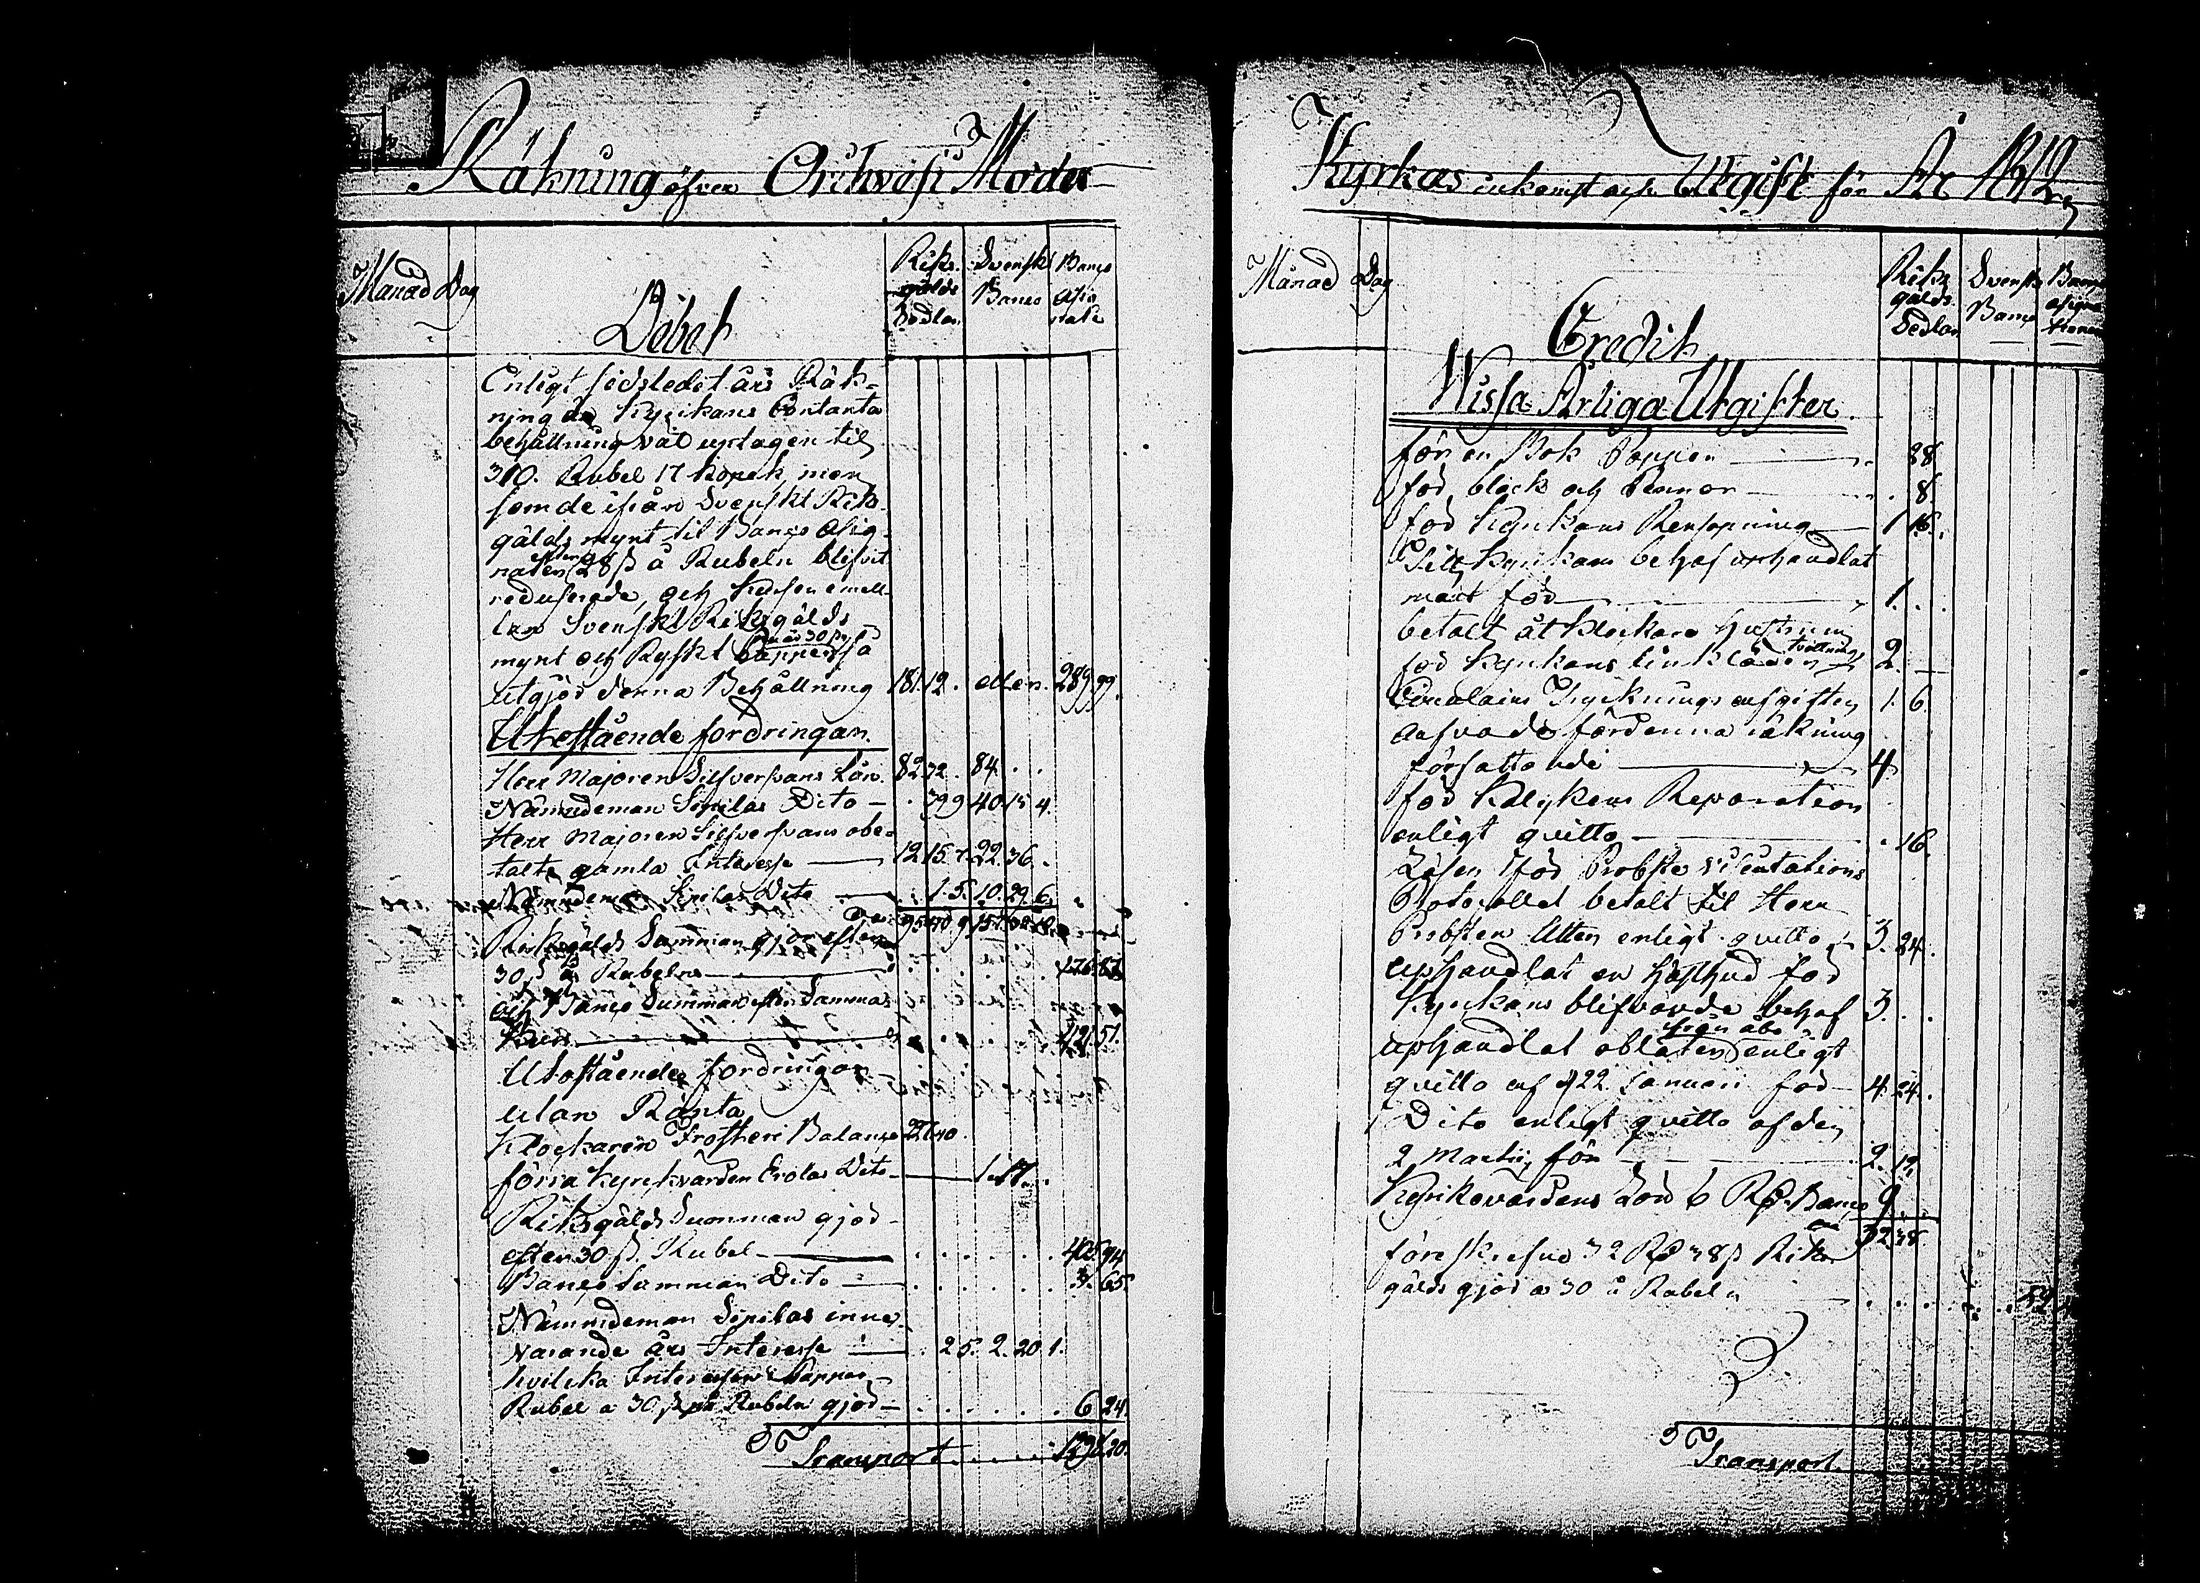 Räkning öfver Orihvesi Moder
Månad Dag
Debet
Riks-
gälds
Sedlar
Svenskt
Banco
Banco
Asig
nate
Enligt sidstledet års Räk-
ning då Kyrkans Contanta
behållning var uptagen til
310. Rubel 17 Kopek men
som de ifrån Svenskt Riks
gälds mynt til Banco Asig-
naten efter 28 ß å Rubeln blifvit
reducerade, och Kursen emell-
lan Svenskt Riksgälds
mynt och Ryskt Papper är 30 ß så
utgjör denna Behållning 181. 12. eller 289 99.
Utestående fordringar.
Herr Majoren Silfversvans Lån 82 32. 84. . .
Nämndeman Sipilas Dito — . 39 9 40 15 4.
Herr Majoren Silfversvans obe-
talte gamla Interesse — 12 15. 7. 22. 36. .
Nämndeman Sipilas Dito — . 1. 5. 10. 29. 6.
Riksgälds Summan gjör efter
30 ß å Rubeln — 
och Banco Summan efter Samma
Kurs — 421 51.
Utestående fordringar
utan Ränta
Klockaren Frosteri Balance
förra Kyrkvärden Erolas Dito —
Riksgälds Summan gjör
efter 30 ß. Rubel — 
Banco Summan Dito — 3. 65.
Nämndeman Sipilas inne-
varande års Interesse — . 2 5. 2. 20 1.
hvilcka Interessen i Papper
Rubel a 30 ß på Rubeln gjör — 6 24.
Transport
Kyrkas inkomst och Utgift för År 1812
Månad Dag
Credit
Riks
gälds
Sedlar
Svenskt
Banco
Banco
asigna
tioner
Wissa Årliga Utgifter
för en Bok Papper — . 38
för bläck och Pennor — . 8.
för Kyrkans Rensopning — 1 16.
Till Kyrkans behof uphandlat
för — 1. . .
betalt åt Klockare Hustrun
för Kyrkans linkläders tvättning 2. —
Circulairs Tryknings afgiften 1. 6.
Arfvode för denna räkning
författande — 4
för Kalkens Reparation
enligt qvitto — . 16.
Lösen för Probste Visitations
Protocollet betalt til Herr
Probsten enligt qvitto — 3. 24.
uphandlat en för
Kyrkans blifvande behof 3. . .
uphandlat oblater från åbo enligt
qvitto af d 22 Januari för 4. 24.
Dito enligt qvitto af den
2 Martii för —
Kyrkovärdens Lön 6 Rd Banco 9
32 38
föreskrefne 32 Rd 38 ß Riks
gälds gjör a 30 å Rubeln
Transport.